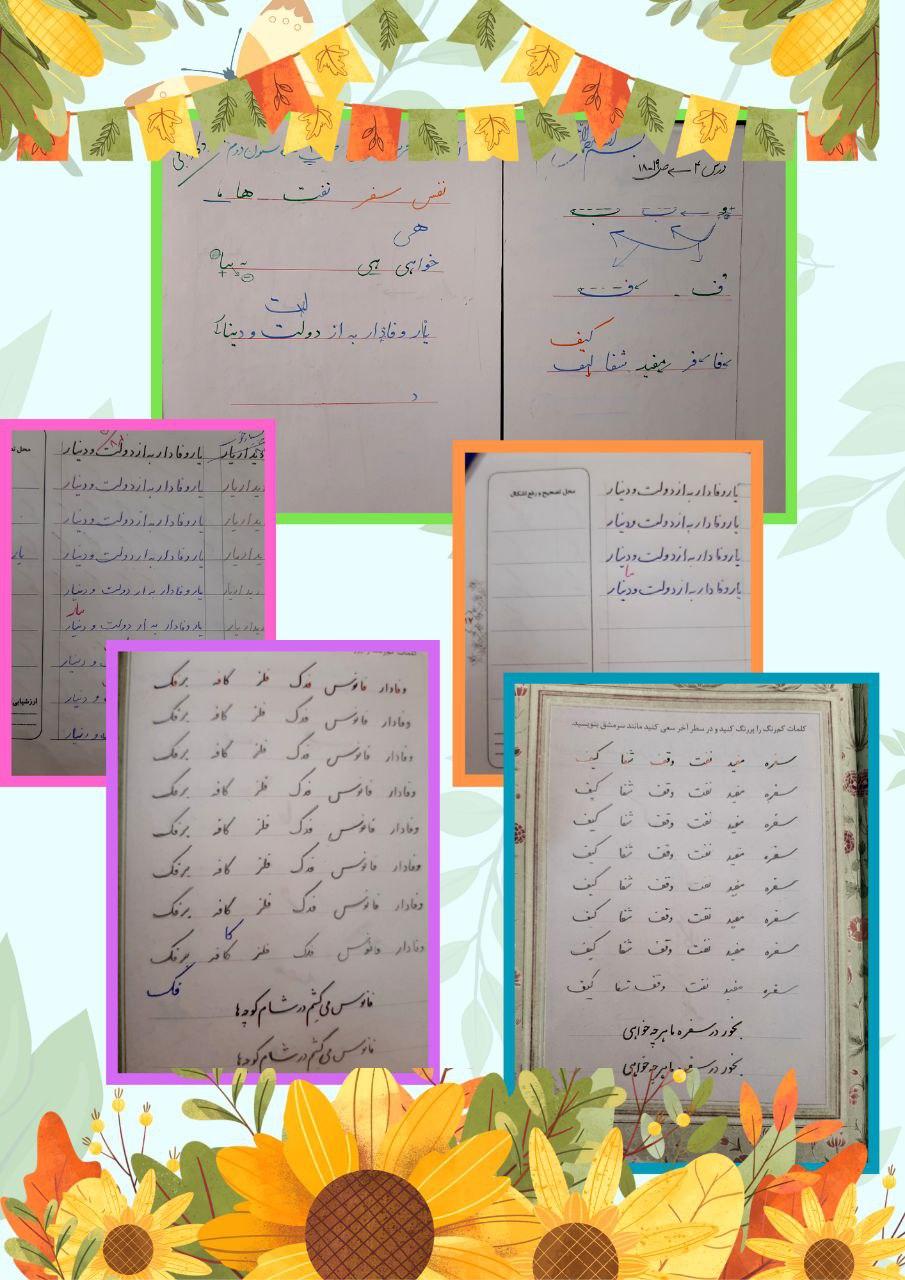 درس ۴ ← ص ۱۹-۱۸
ف
فا فر مفید شفا کیف
کیف
نفس سفر نفت ها
هی
خواهی هی
یار وفادار به از دولت و دینار
د
دیدار یار
یار وفادار به از دولت و دینار
دیدار یار
یار وفادار به از دولت و دینار
دیدار یار
یار وفادار به از دولت و دینار
دیدار یار
یار وفادار به از دولت و دینار
دیدار یار
یار وفادار به از دولت و دینار
یار
دیدار یار
یار وفادار به از دولت و دینار
و دینار
و دینار
و دینار
ارزشیابی
محل تصحیح و رفع اشکال
یار وفادار به از دولت و دینار
یار وفادار به از دولت و دینار
یار وفادار به از دولت و دینار
یار وفادار به از دولت و دینار
۱۷
وفادار فانوس فدک فلز کافه برفک
وفادار فانوس فدک فلز کافه برفک
وفادار فانوس فدک فلز کافه برفک
وفادار فانوس فدک فلز کافه برفک
وفادار فانوس فدک فلز کافه برفک
وفادار فانوس فدک فلز کافه برفک
وفادار فانوس فدک فلز کافه برفک
کا
وفادار فانوس فدک فلز کافه برفک
فک
فانوس می‌کشم در شام کوچه‌ها
فانوس می‌کشم در شام کوچه‌ها
کلمات کم‌رنگ را پررنگ کنید و در سطر آخر سعی کنید مانند سرمشق بنویسید.
سفره مفید نفت وقف شفا کیف
سفره مفید نفت وقف شفا کیف
سفره مفید نفت وقف شفا کیف
سفره مفید نفت وقف شفا کیف
سفره مفید نفت وقف شفا کیف
سفره مفید نفت وقف شفا کیف
سفره مفید نفت وقف شفا کیف
سفره مفید نفت وقف شفا کیف
بخور در سفره ما هر چه خواهی
بخور در سفره ما هر چه خواهی